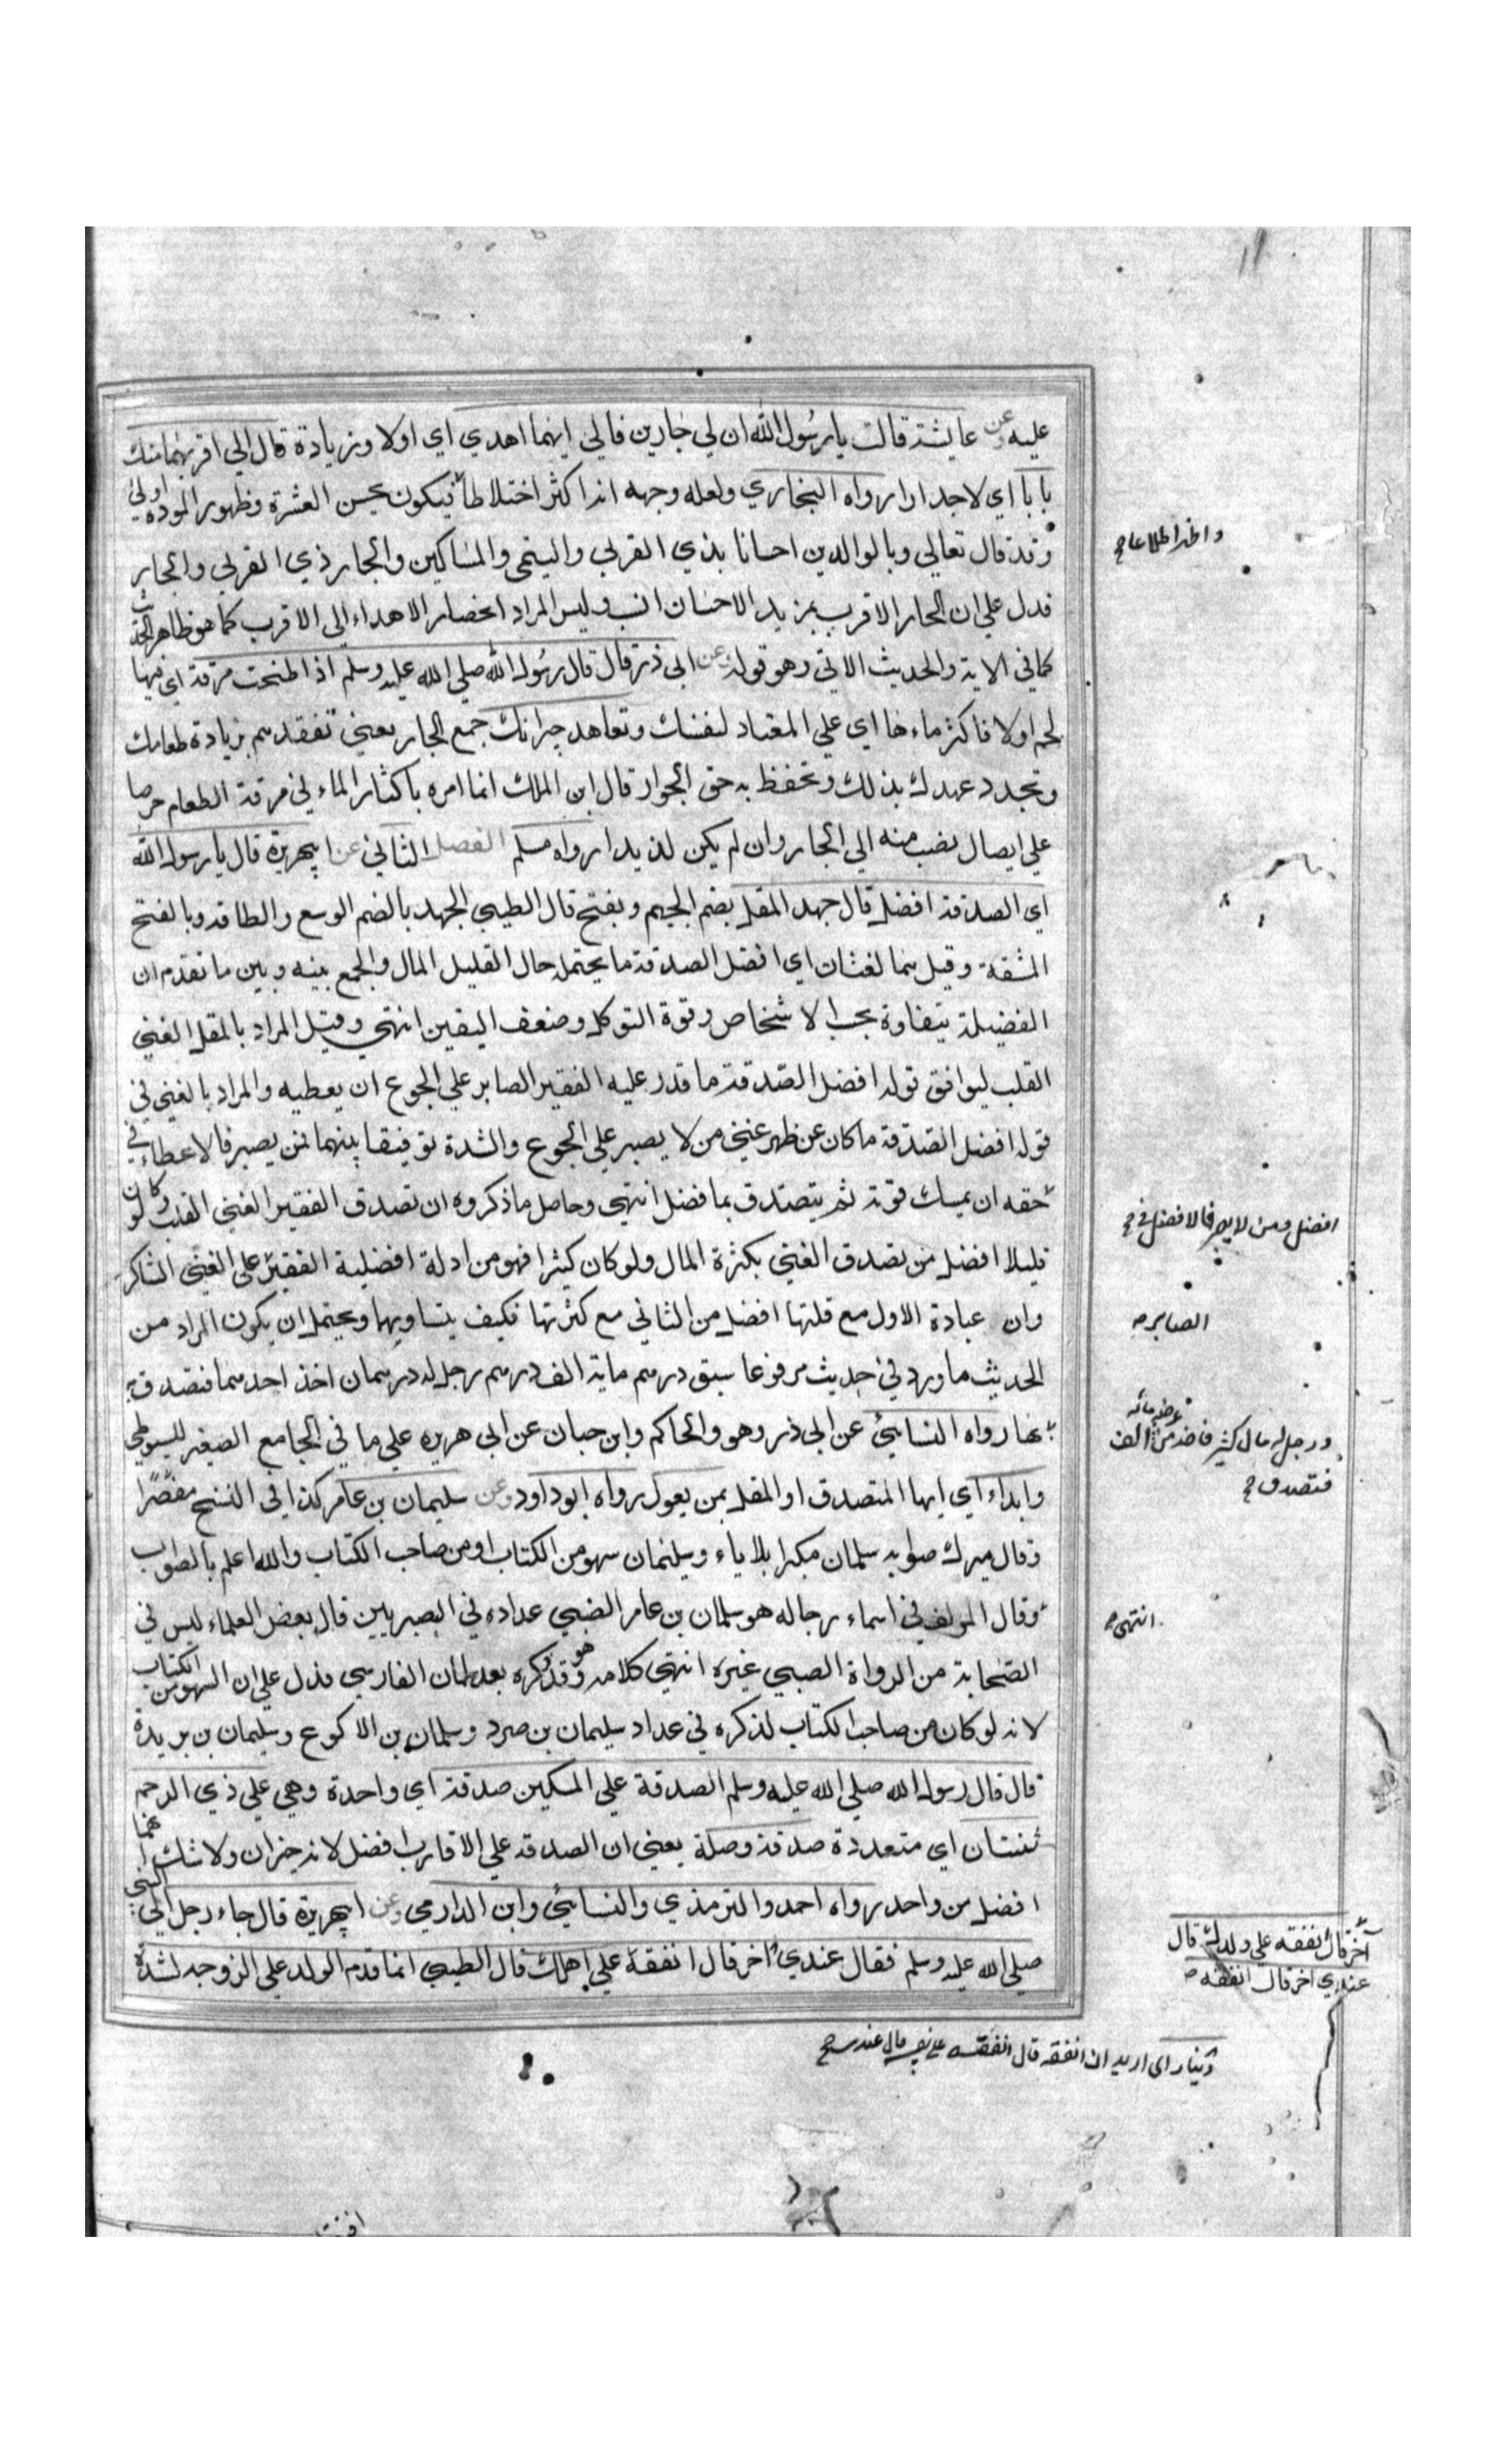 عليه وعن عايشة قالت يا رسول الله ان لي جارين فالي ايهما اهدي اي اولا وزيادة قال الي اقربهما منك
بابا اي لا جدارا رواه البخاري ولعله وجهه انه اكثر اختلاطا فيكون بحسن العشرة وظهور المودة اولي
وقد قال تعالي وبالوالدين احسانا بذي القربي واليتمي والمساكين والجار ذي القربي والجار
فدل علي ان الجار الاقرب بمزيد الاحسان انسب وليس المراد انحصار الاهداء الي الاقرب كما هو ظاهر الحديث
كما في الاية والحديث الاتي وهو قوله وعن ابي ذر قال قال رسول الله صلي الله عليه وسلم اذا طبخت مرقة اي فيها
لحم اولا فاكثر ماءها اي علي المعتاد لنفسك وتعاهد جيرانك جمع الجار يعني تفقدهم بزيادة طعامك
وتجدد عهدك بذلك وتحفظ به حق الجوار قال ابن الملك انما امره باكثار الماء في مرقة الطعام حرصا
علي ايصال نصيب منه الي الجار وان لم يكن لذيذا رواه مسلم الفصل الثاني عن ابي هريرة قال يا رسول الله
اي الصدقة افضل قال جهد المقل بضم الجيم وبفتح قال الطيبي الجهد بالضم الوسع والطاقة وبالفتح
المشقة وقيل هما لغتان اي افضل الصدقة ما يحتمله حال القليل المال والجمع بينه وبين ما تقدم ان
الفضيلة يتفاوة بحسب الاشخاص وقوة التوكل وضعف اليقين انتهي وقيل المراد بالمقل الغني
القلب ليوافق قوله افضل الصدقة ما قدر عليه الفقير الصابر علي الجوع ان يعطيه والمراد بالغني في
قوله افضل الصدقة ما كان عن ظهر غني من لا يصبر علي الجوع والشدة توفيقا بينهما فمن يصبر فالاعطاء في
حقه ان يمسك قوته ثم يتصدق بما فضل انتهي وحاصل ما ذكروه ان تصدق الفقير الغني القلب ولو كان
قليلا افضل من تصدق الغني بكثرة المال ولو كان كثيرا فهو من ادلة افضلية الفقير علي الغني الشاكر
وان عبادة الاول مع قلتها افضل من الثاني مع كثرتها فكيف يتساويهما ويحتمل ان يكون المراد من
الحديث ما ورد في حديث مرفوعا سبق درهم ماية الف درهم رجل له درهمان اخذ احدهما فتصدق به
بها رواه النسائي عن ابي ذر وهو والحاكم وابن حبان عن ابي هريره علي ما في الجامع الصغير للسيوطي
وابداء اي ايها المتصدق او المقل بمن يعول رواه ابو داود وعن سليمان بن عامر كذا في النسخ مصغرا
وقال ميرك صوابه سلمان مكبرا بلا ياء وسليمان سهو من الكتاب او من صاحب الكتاب والله اعلم بالصواب
وقال المولف في اسماء رجاله هو سلمان بن عامر الضبي عداده في البصريين قال بعض العلماء ليس في
الصحابة من الرواة الضبي غيره انتهي كلامه وهو قد ذكره بعد سلمان الفارسي فدل علي ان السهو من الكتاب
لانه لو كان من صاحب الكتاب لذكره في عداد سليمان بن صرد وسلمان بن الاكوع وسليمان بن بريدة
قال قال رسول الله صلي الله عليه وسلم الصدقة علي المسكين صدقة اي واحدة وهي علي ذي الرحم
ثنتان اي متعددة صدقة وصلة يعني ان الصدقة علي الاقارب افضل لانه خيران ولا شك انهما
افضل من واحد رواه احمد والترمذي والنسائي وابن الدارمي وعن ابي هريرة قال جاء رجل الي النبي
صلي الله عليه وسلم فقال عندي اخر قال انفقه علي اهلك قال الطيبي انما قدم الولد علي الزوجه لشدة
واخذ اطلاعا
افضل ومن لا يصبر فالافضل في
الصابر
ورجل له مال كثير فاخذ من عرضه مائة الف
فتصدق
انتهي
آخر قال انفقه علي ولدك قال
عندي اخر قال انفقه
دينار اي اريد ان انفقه قال انفقه علي نفسك قال عندي